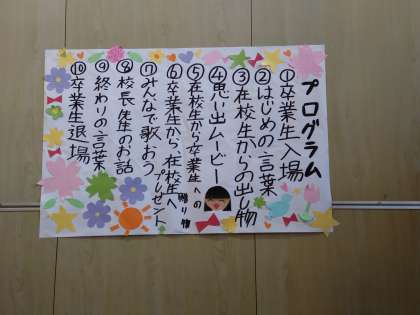 プログラム
①卒業生入場
②はじめの言葉
③在校生からの出し物
④思い出ムービー
⑤在校生から卒業生への
贈り物
⑥卒業生から、在校生へ
プレゼント
⑦みんなで歌おう
⑧校長先生のお話
⑨終わりの言葉
⑩卒業生退場